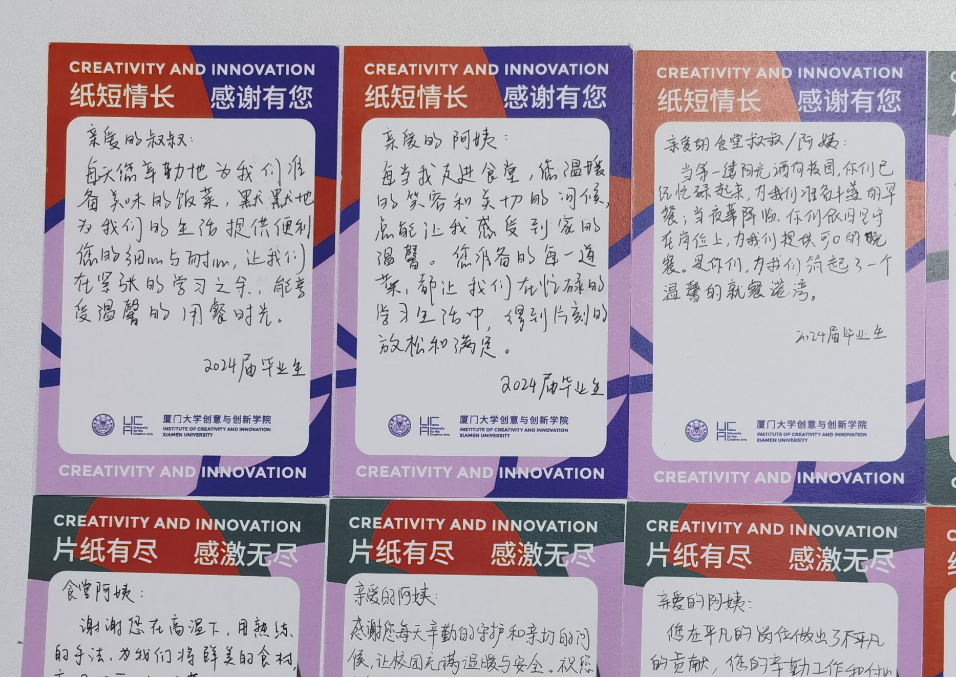 CREATIVITY AND INNOVATION
纸短情长 感谢有您
亲爱的叔叔:
每天您辛勤地为我们准
备美味的饭菜,默默地
为我们的生活提供便利
您的细心与耐心,让我们
在紧张的学习之余,能享
受温馨的用餐时光。
2024届毕业生
UCA University for the Creative Arts
厦门大学创意与创新学院
INSTITUTE OF CREATIVITY AND INNOVATION
XIAMEN UNIVERSITY
CREATIVITY AND INNOVATION
CREATIVITY AND INNOVATION
纸短情长 感谢有您
亲爱的阿姨:
每当我走进食堂,您温暖
的笑容和关切的问候,
总能让我感受到家的
温馨。您准备的每一道
菜,都让我们在忙碌的
学习生活中,得到片刻的
放松和满足。
2024届毕业生
UCA University for the Creative Arts
厦门大学创意与创新学院
INSTITUTE OF CREATIVITY AND INNOVATION
XIAMEN UNIVERSITY
CREATIVITY AND INNOVATION
CREATIVITY AND INNOVATION
纸短情长 感谢有您
亲爱的食堂叔叔/阿姨:
当第一缕阳光洒向校园,你们已
经忙碌起来,为我们准备丰盛的早
餐;当夜幕降临,你们依旧坚守
在岗位上,为我们提供可口的晚
餐。是你们,为我们筑起了一个
温馨的就餐港湾。
2024届毕业生
UCA University for the Creative Arts
厦门大学创意与创新学院
INSTITUTE OF CREATIVITY AND INNOVATION
XIAMEN UNIVERSITY
CREATIVITY AND INNOVATION
CREATIVITY AND INNOVATION
片纸有尽 感激无尽
食堂阿姨:
谢谢您在高温下,用熟练
的手法,为我们将鲜美的食材,
CREATIVITY AND INNOVATION
片纸有尽 感激无尽
亲爱的阿姨:
感谢您每天辛勤的守护和亲切的问
候,让校园充满温暖与安全。祝您
CREATIVITY AND INNOVATION
片纸有尽 感激无尽
亲爱的阿姨:
您在平凡的岗位做出了不平凡
的贡献,您的辛勤工作和付出